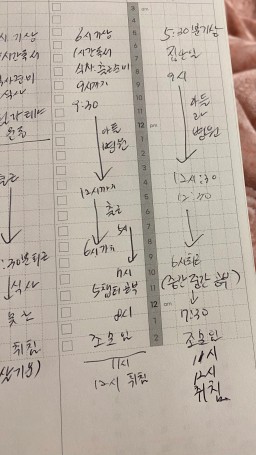 시 기상
1시간 독서
식사준비
식사
운동
출근
:30분 퇴근
식사
취침
6시 기상
1시간 독서
식사.출근준비
9시까지
9:30
아들
병원
12시까지
출근
6시까지
7시
8시
조호인
11시
12시 취침
am
5
6
7
8
9
10
11
12 pm
1
2
3
4
5
6
7
8
9
10
11
12 am
1
2
5:30분 기상
집안일
9시
아들
병원
12시:30
12:30
6시 퇴근
(중간중간 공부)
7:30
조호인
11시
12시
취침